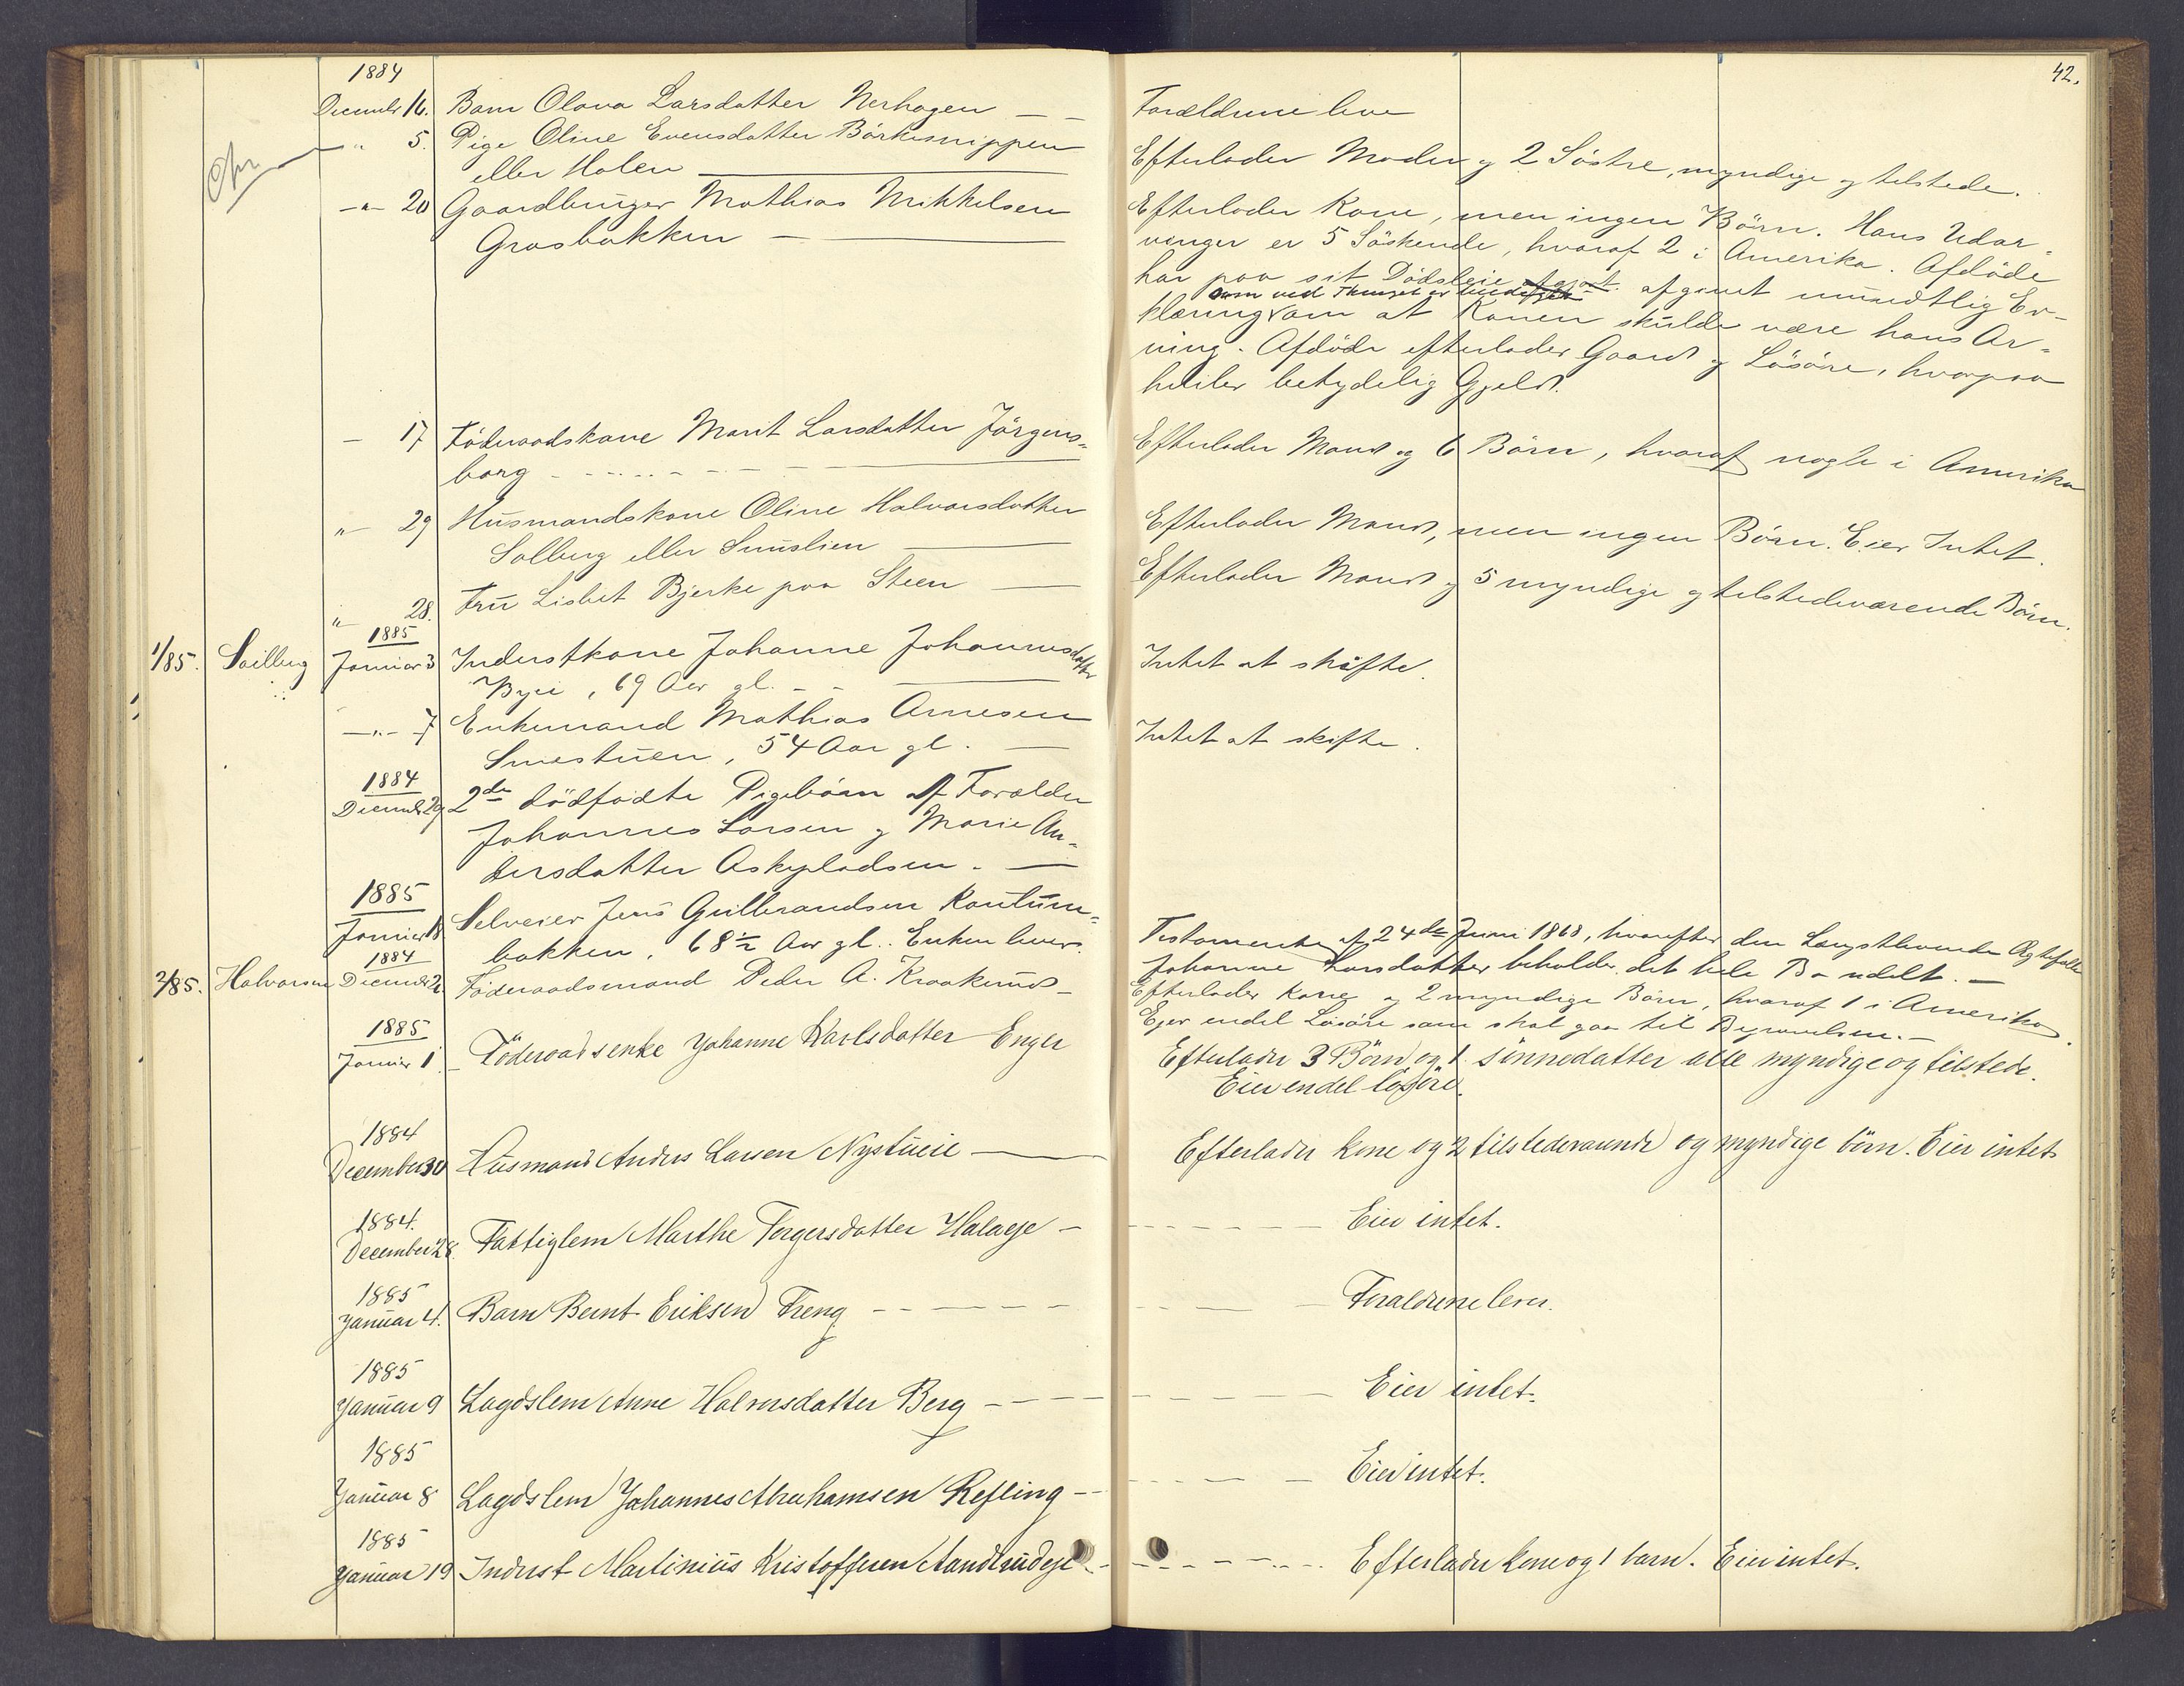 42.
1884
December 16. Barn Olava Larsdatter Nerhagen — Forældrene leve
" 5. Pige Oline Evensdatter Börkesnippen
eller Holen — Efterlader Moder og 2 Söstre, myndige og tilstede.
—"— 20 Gaardbruger Mathias Mikkelsen
Grasbakken —
Efterlader Kone, men ingen Börn. Hans Udar-
vinger er 5 Söskende, hvoraf 2 i Amerika. Afdöde
har paa sit Dödsleie afgivet mundtlig Er-
klæring om at Konen skulde være hans Ar-
ving. Afdöde efterlader Gaard og Lösöre, hvorpaa
hviler betydelig Gjeld.
— 17 Föderaadskone Marit Larsdatter Jörgens-
borg — Efterlader Mand og 6 Börn, hvoraf nogle i Amerika
"— 29 Husmandskone Oline Halvorsdatter
Solberg eller Smuslien — Efterlader Mand, men ingen Börn. Eier Intet.
"— 28. Fru Lisbet Bjerke paa Steen — Efterlader Mand og 5 myndige og tilstedeværende Börn.
1885
1/85. Soilberg Januar 3 Inderstkone Johanne Johannesdatter
Byei, 69 Aar gl. — Intet at skifte.
—"— 7 Enkemand Mathias Arnesen
Smestuen, 54 Aar gl. — Intet at skifte.
1884
December 29 2de dödfödte Pigebörn af Forælder
Johannes Larsen og Marie An-
dersdatter Askepladsen. —
1885
Januar 18 Selveier Jens Gulbrandsen Kantum-
bakken, 68½ Aar gl. Enken lever.
Testamente af 24de Juni 1868, hvorefter den Længstlevende Ægtefælle
Johanne Larsdatter beholder det hele Bo udelt. —
1884
2/85. Halvorsen December 2 Föderaadsmand Peder A. Kraakerud —
Efterlader Kone og 2 myndige Börn, hvoraf 1 i Amerika.
Ejer endel Lösöre som skal gaa til Begravelsen. —
1885
Januar 1. Föderaadsenke Johanne Karlsdatter Enger
Efterlader 3 Börn og 1 sönnedatter alle myndige og tilstede.
Eier endel lösöre.
1884
December 30 Husmand Anders Larsen Nystueie — Efterlader kone og 2 tilstedeværende og myndige börn. Eier intet
1884.
December 28. Fattiglem Marthe Torgersdatter Halaeje — Eier intet.
1885
Januar 4. Barn Bernt Eriksen Freng — Forældrene lever.
1885
Januar 9 Lagdslem Anne Halvorsdatter Berg — Eier intet.
1885
Januar 8 Lagdslem Johannes Abrahamsen Refling — Eier intet.
1885
Januar 19 Inderst Martinius Kristoffersen — Efterlader kone og 1 barn. Eier intet.